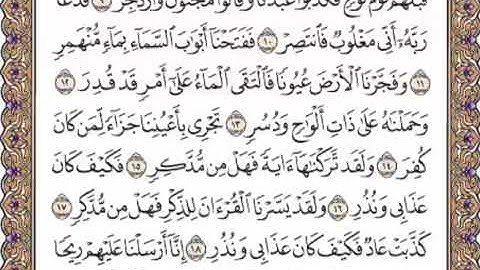 قبلهم قوم نوح فكذبوا عبدنا وقالوا مجنون وازدجر ٩ فدعا
رَبَّهُۥٓ أَنِّى مَغْلُوبٌ فَٱنتَصِرْ ١٠ فَفَتَحْنَآ أَبْوَٰبَ ٱلسَّمَآءِ بِمَآءٍ مُّنْهَمِرٍ
١١ وَفَجَّرْنَا ٱلْأَرْضَ عُيُونًا فَٱلْتَقَى ٱلْمَآءُ عَلَىٰٓ أَمْرٍ قَدْ قُدِرَ ١٢
وَحَمَلْنَٰهُ عَلَىٰ ذَاتِ أَلْوَٰحٍ وَدُسُرٍ ١٣ تَجْرِى بِأَعْيُنِنَا جَزَآءً لِّمَن كَانَ
كُفِرَ ١٤ وَلَقَد تَّرَكْنَٰهَآ ءَايَةً فَهَلْ مِن مُّدَّكِرٍ ١٥ فَكَيْفَ كَانَ
عَذَابِى وَنُذُرِ ١٦ وَلَقَدْ يَسَّرْنَا ٱلْقُرْءَانَ لِلذِّكْرِ فَهَلْ مِن مُّدَّكِرٍ ١٧
كَذَّبَتْ عَادٌ فَكَيْفَ كَانَ عَذَابِى وَنُذُرِ ١٨ إِنَّآ أَرْسَلْنَا عَلَيْهِمْ رِيحًا